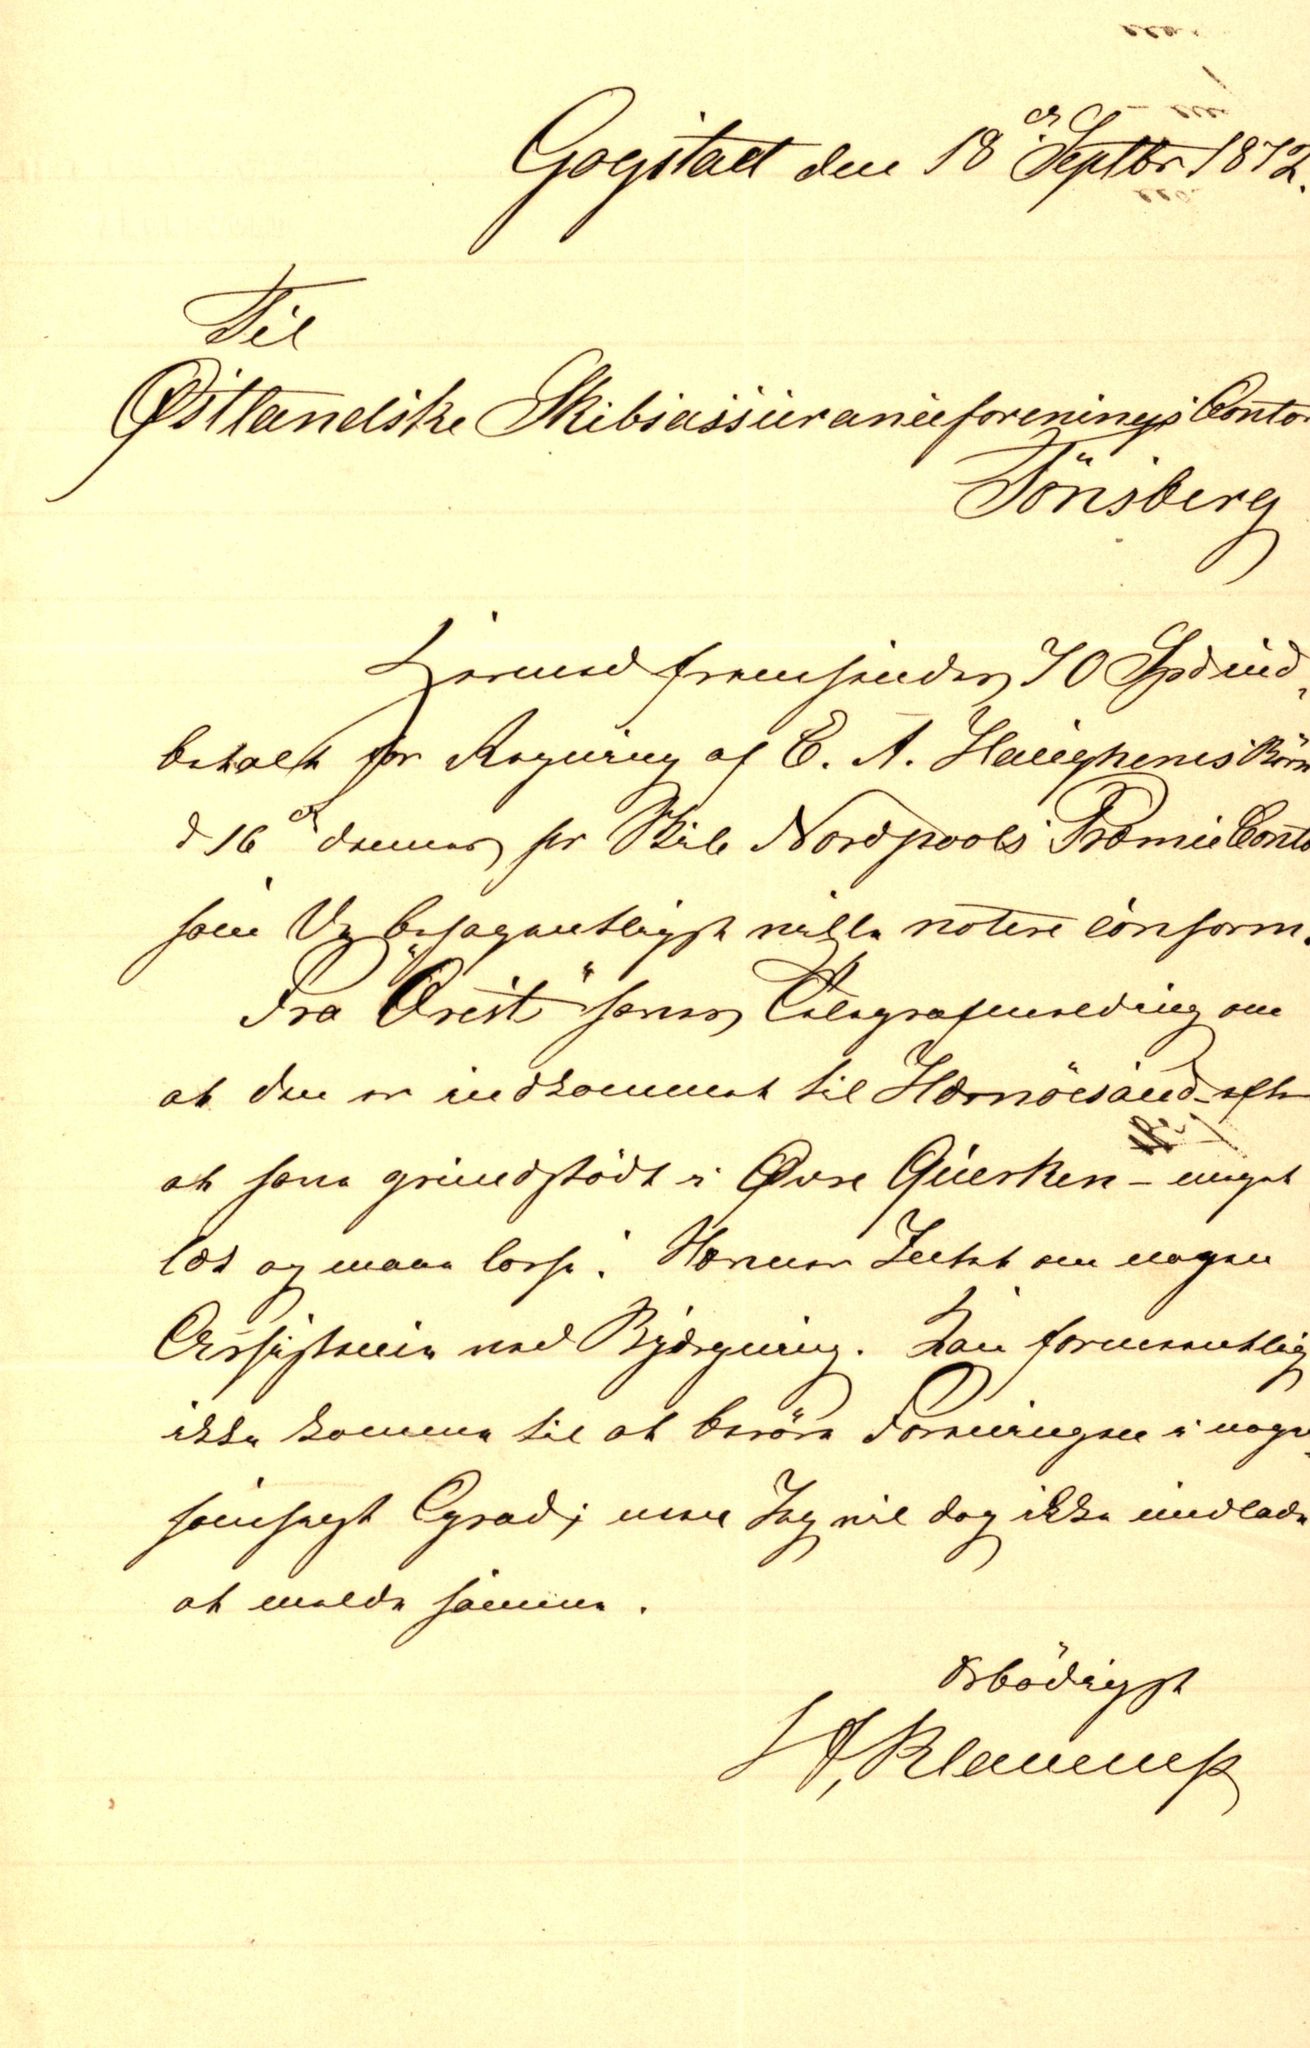 Gogstad den 18 de Septbr 1872.
Til
Østlandske Skibsassuranceforenings Contor
Tönsberg
Hermed fremsendes 70 Spd ind-
betalt for Regning af E. A.
d 16 de dennes for Skib Nordpools Præmie Conto
som De behageligst ville notere conform.
Fra "Orest" haves Telegrafmelding om
at den er indkommet til Hernösand efter
at have grundstödt i Øvre Querken - meget
læk og maa losse. Nævner Intet om nogen
Assistence ved Bjergning. Kan formentlig
ikke komme til at beröre Foreningen i nogen
somhelst Grad; men Jeg vil dog ikke undlade
at melde samme.
Ærbödigst